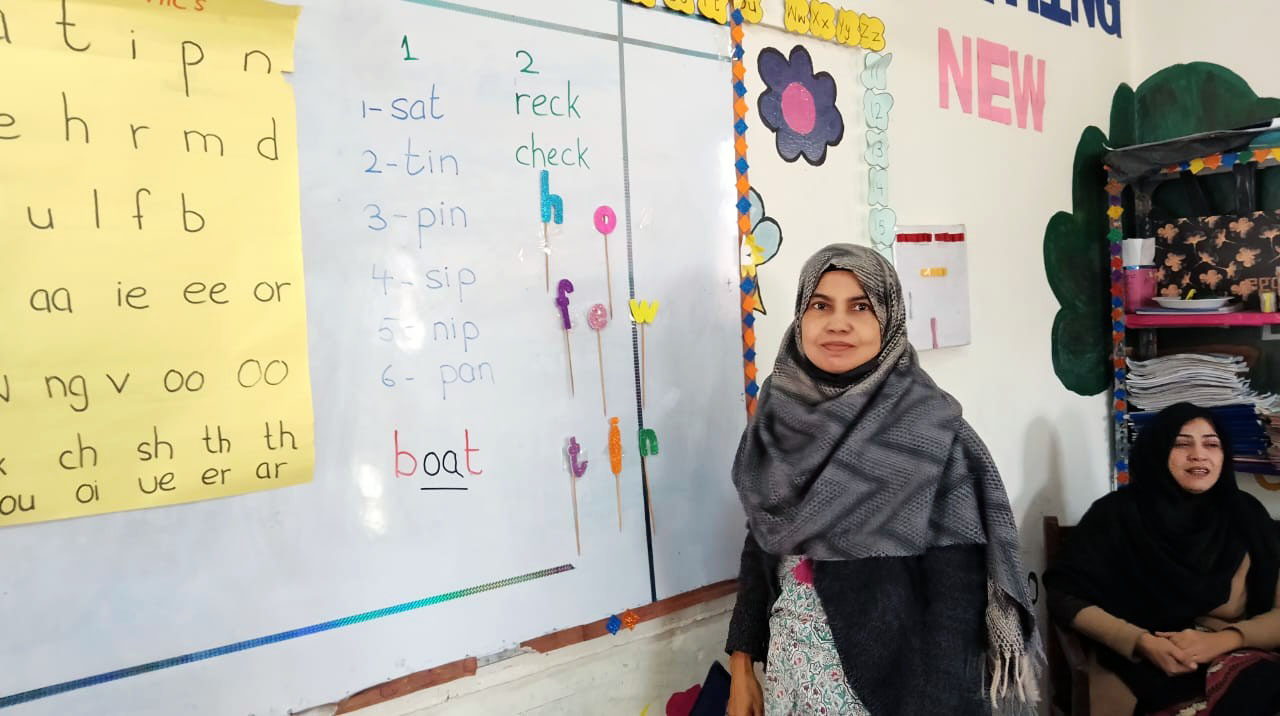 t i p n
e h r m d
u l f b
aa ie ee or
ng v oo oo
ch sh th th
ou oi ue er ar
1
1-sat
2-tin
3-pin
4-sip
5-nip
6-pan
boat
2
reck
check
h o
f e w
t i n
Ww Xx Yy Zz
12
13
14
15
NEW